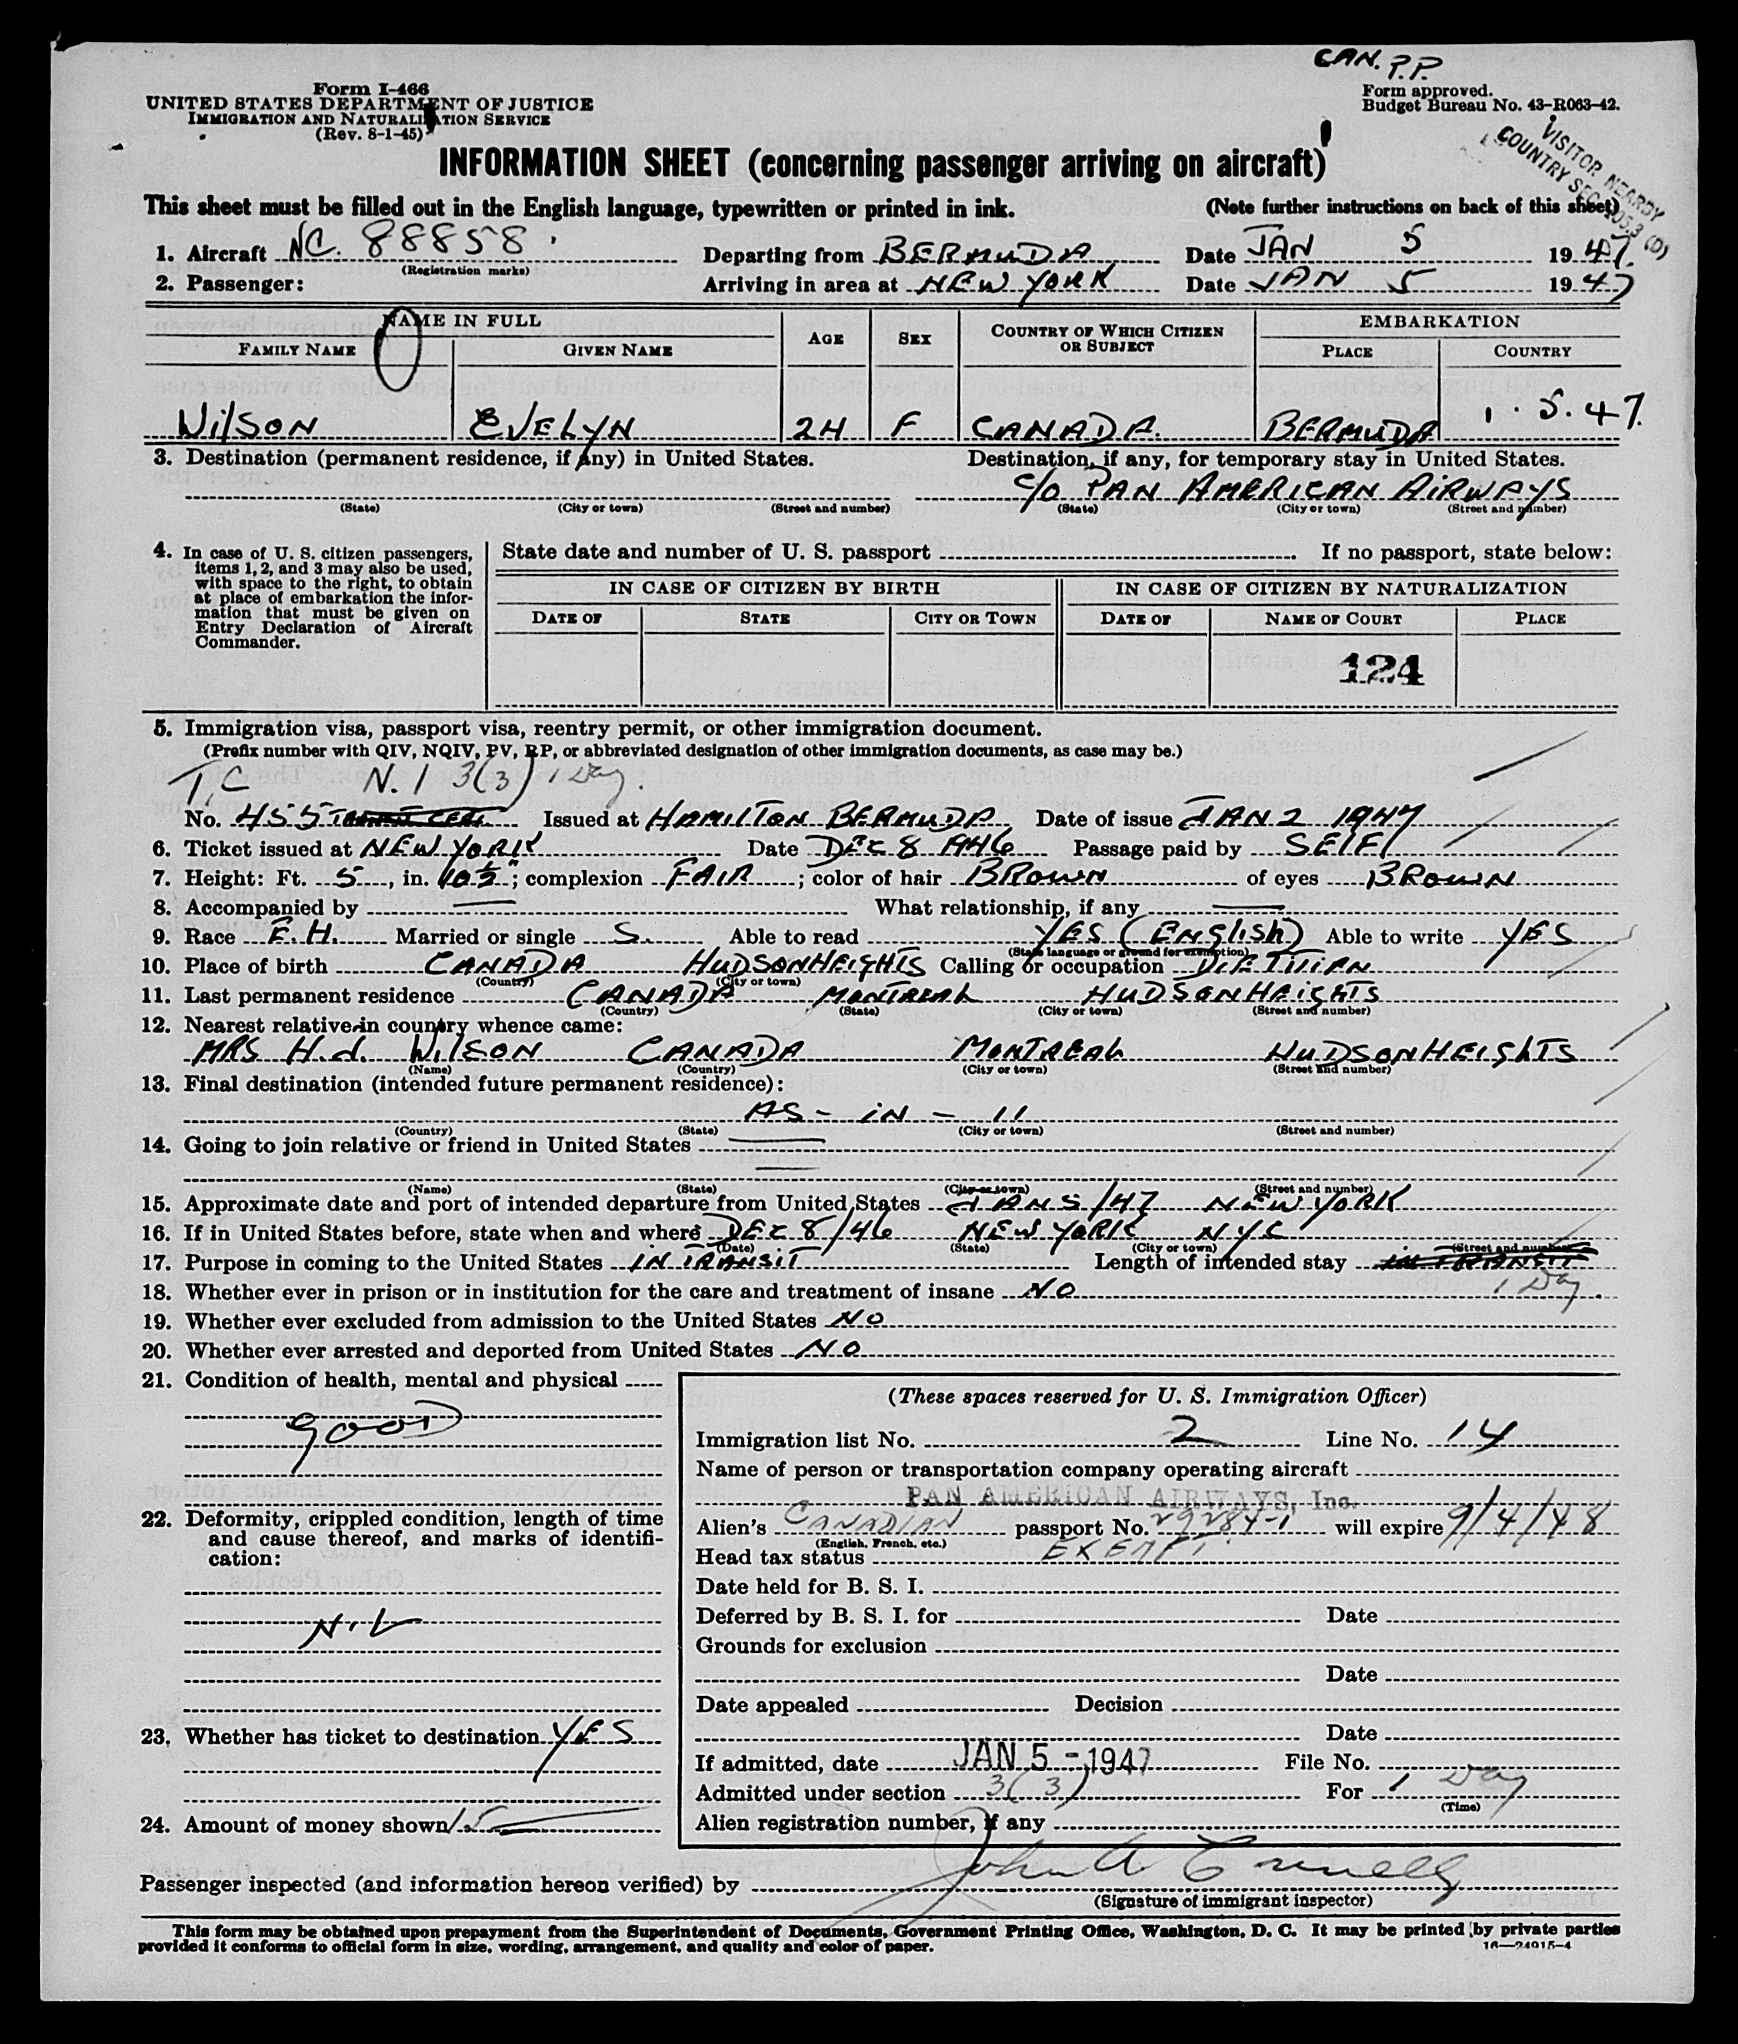 CAN. P.P.
Form I-466
UNITED STATES DEPARTMENT OF JUSTICE
IMMIGRATION AND NATURALIZATION SERVICE
(Rev. 8-1-45)
Form approved.
Budget Bureau No. 43-R063-42.
VISITOR NEARBY
COUNTRY SEC. 105.3 (D)
INFORMATION SHEET (concerning passenger arriving on aircraft)
This sheet must be filled out in the English language, typewritten or printed in ink. (Note further instructions on back of this sheet)
1. Aircraft NC. 88858 Departing from BERMUDA Date JAN 5 1947.
(Registration marks)
2. Passenger: Arriving in area at NEW YORK Date JAN 5 1947
NAME IN FULL AGE SEX COUNTRY OF WHICH CITIZEN OR SUBJECT EMBARKATION
FAMILY NAME GIVEN NAME PLACE COUNTRY
WilSON EVELYN 24 F CANADA. BERMUDA 1.5.47.
3. Destination (permanent residence, if any) in United States. Destination, if any, for temporary stay in United States.
c/o PAN AMERICAN AIRWAYS
(State) (City or town) (Street and number) (State) (City or town) (Street and number)
4. In case of U. S. citizen passengers, items 1, 2, and 3 may also be used, with space to the right, to obtain at place of embarkation the information that must be given on Entry Declaration of Aircraft Commander.
State date and number of U. S. passport . If no passport, state below:
IN CASE OF CITIZEN BY BIRTH IN CASE OF CITIZEN BY NATURALIZATION
DATE OF STATE CITY OR TOWN DATE OF NAME OF COURT PLACE
124
5. Immigration visa, passport visa, reentry permit, or other immigration document.
(Prefix number with QIV, NQIV, PV, RP, or abbreviated designation of other immigration documents, as case may be.)
T.C N.1 3(3) 1 Day.
No. 455 Issued at HAMILTON BERMUDA Date of issue JAN 2 1947
6. Ticket issued at NEW YORK Date DEC 8 1946 Passage paid by SELF
7. Height: Ft. 5, in. 10½"; complexion FAIR; color of hair BROWN of eyes BROWN
8. Accompanied by — What relationship, if any —
9. Race E.H. Married or single S. Able to read YES (ENglish) Able to write YES
(State language or ground for exemption)
10. Place of birth CANADA HUDSONHEIGHTS Calling or occupation DIETITIAN
(Country) (City or town)
11. Last permanent residence CANADA MONTREAL HUDSONHEIGHTS
(Country) (State) (City or town) (Street and number)
12. Nearest relative in country whence came:
MRS H.J. WILSON CANADA MONTREAL HUDSONHEIGHTS
(Name) (Country) (City or town) (Street and number)
13. Final destination (intended future permanent residence):
AS - IN - 11
(Country) (State) (City or town) (Street and number)
14. Going to join relative or friend in United States —
—
(Name) (State) (City or town) (Street and number)
15. Approximate date and port of intended departure from United States JAN 5/47 NEW YORK
16. If in United States before, state when and where DEC 8/46 NEW YORK NYC
(Date) (State) (City or town) (Street and number)
17. Purpose in coming to the United States IN TRANSIT Length of intended stay IN TRANSIT
1 Day.
18. Whether ever in prison or in institution for the care and treatment of insane NO
19. Whether ever excluded from admission to the United States NO
20. Whether ever arrested and deported from United States NO
21. Condition of health, mental and physical
gOOD
22. Deformity, crippled condition, length of time and cause thereof, and marks of identification:
NIL
23. Whether has ticket to destination YES
24. Amount of money shown 15
(These spaces reserved for U. S. Immigration Officer)
Immigration list No. 2 Line No. 14
Name of person or transportation company operating aircraft
PAN AMERICAN AIRWAYS, Inc.
Alien's CANADIAN passport No. 29284-1 will expire 9/4/48
(English, French, etc.)
Head tax status EXEMPT
Date held for B. S. I.
Deferred by B. S. I. for Date
Grounds for exclusion
Date
Date appealed Decision
Date
If admitted, date JAN 5 - 1947 File No.
Admitted under section 3(3) For 1 Day
(Time)
Alien registration number, if any
Passenger inspected (and information hereon verified) by John A
(Signature of immigrant inspector)
This form may be obtained upon prepayment from the Superintendent of Documents, Government Printing Office, Washington, D. C. It may be printed by private parties
provided it conforms to official form in size, wording, arrangement, and quality and color of paper.
16—24915-4